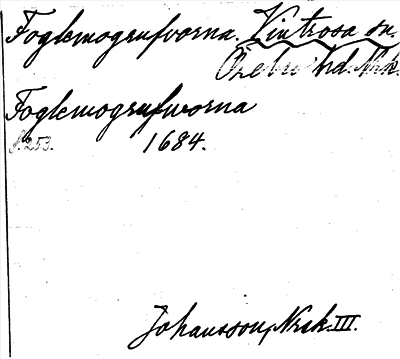 Foglemogrufvorna. Vintrosa sn.
Örebro hd. Nrk.
Foglemogrufworna
s. 253. 1684.
Johansson, Nrsk. III.